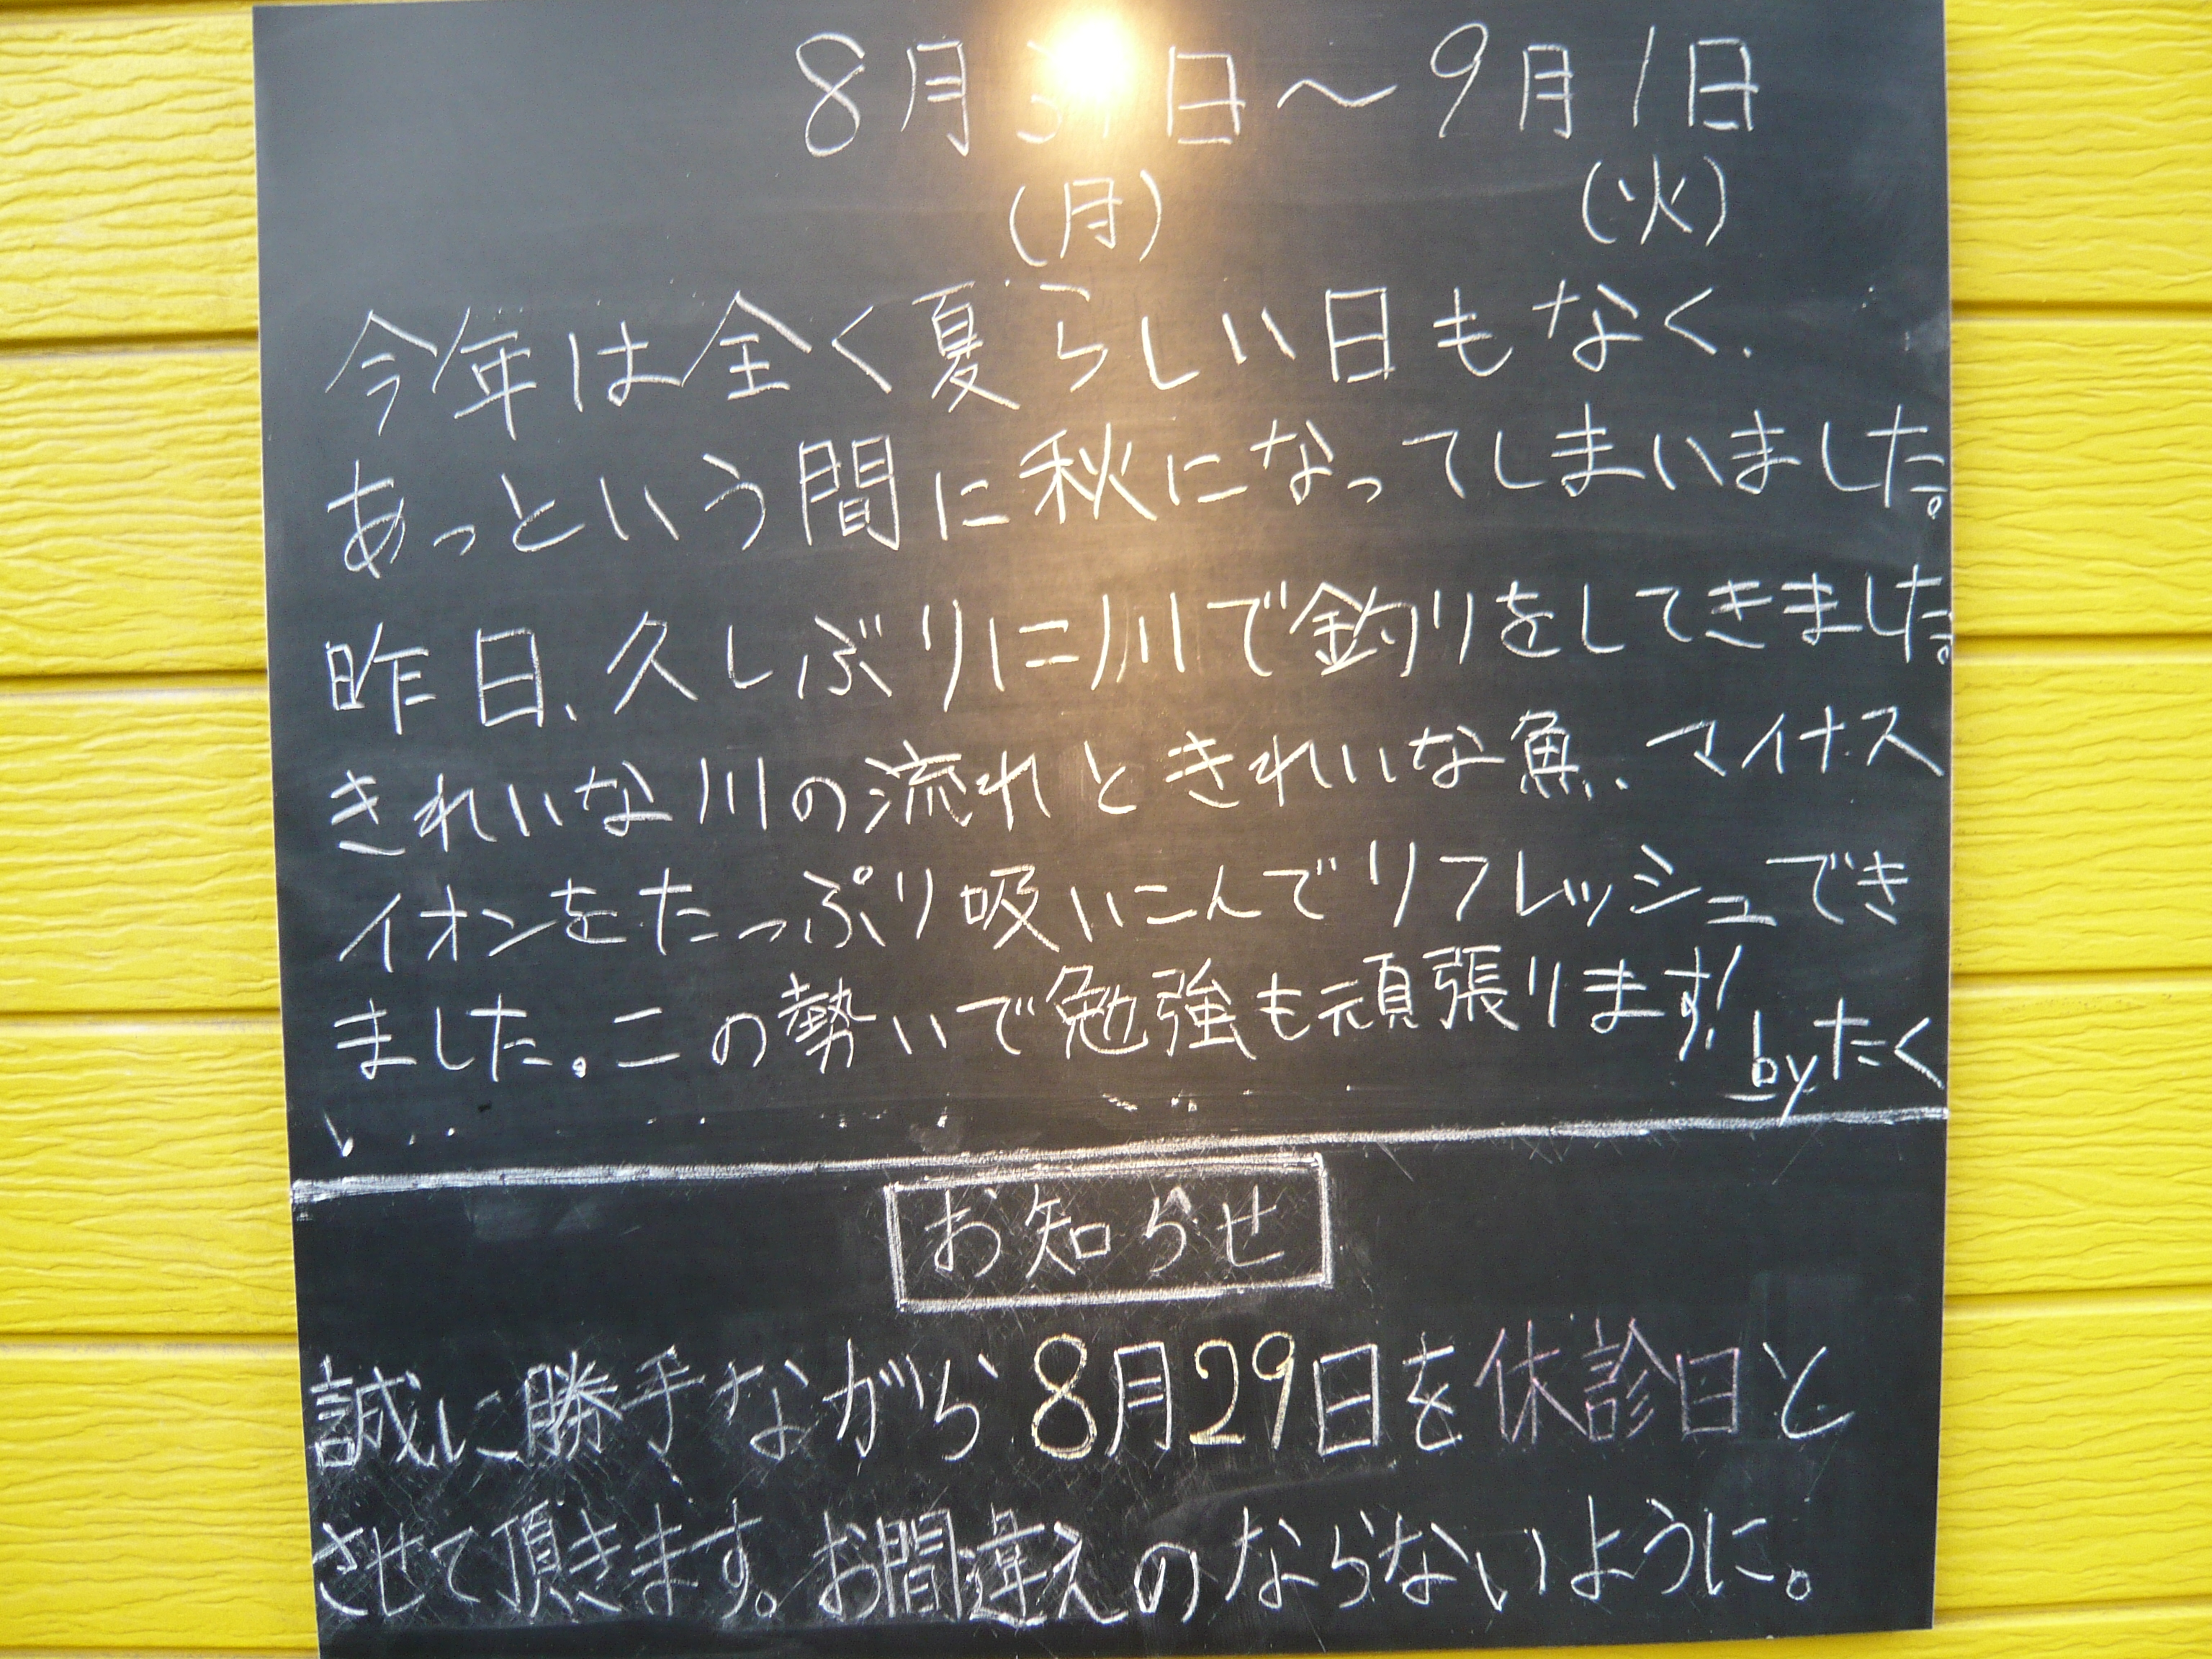 8月31日～9月1日
(月) (火)
今年は全く夏らしい日もなく、
あっという間に秋になってしまいました。
昨日、久しぶりに川で釣りをしてきました。
きれいな川の流れときれいな魚、マイナス
イオンをたっぷり吸いこんでリフレッシュでき
ました。この勢いで勉強も頑張ります!
byたく
お知らせ
誠に勝手ながら8月29日を休診日と
させて頂きます。お間違えのならないように。